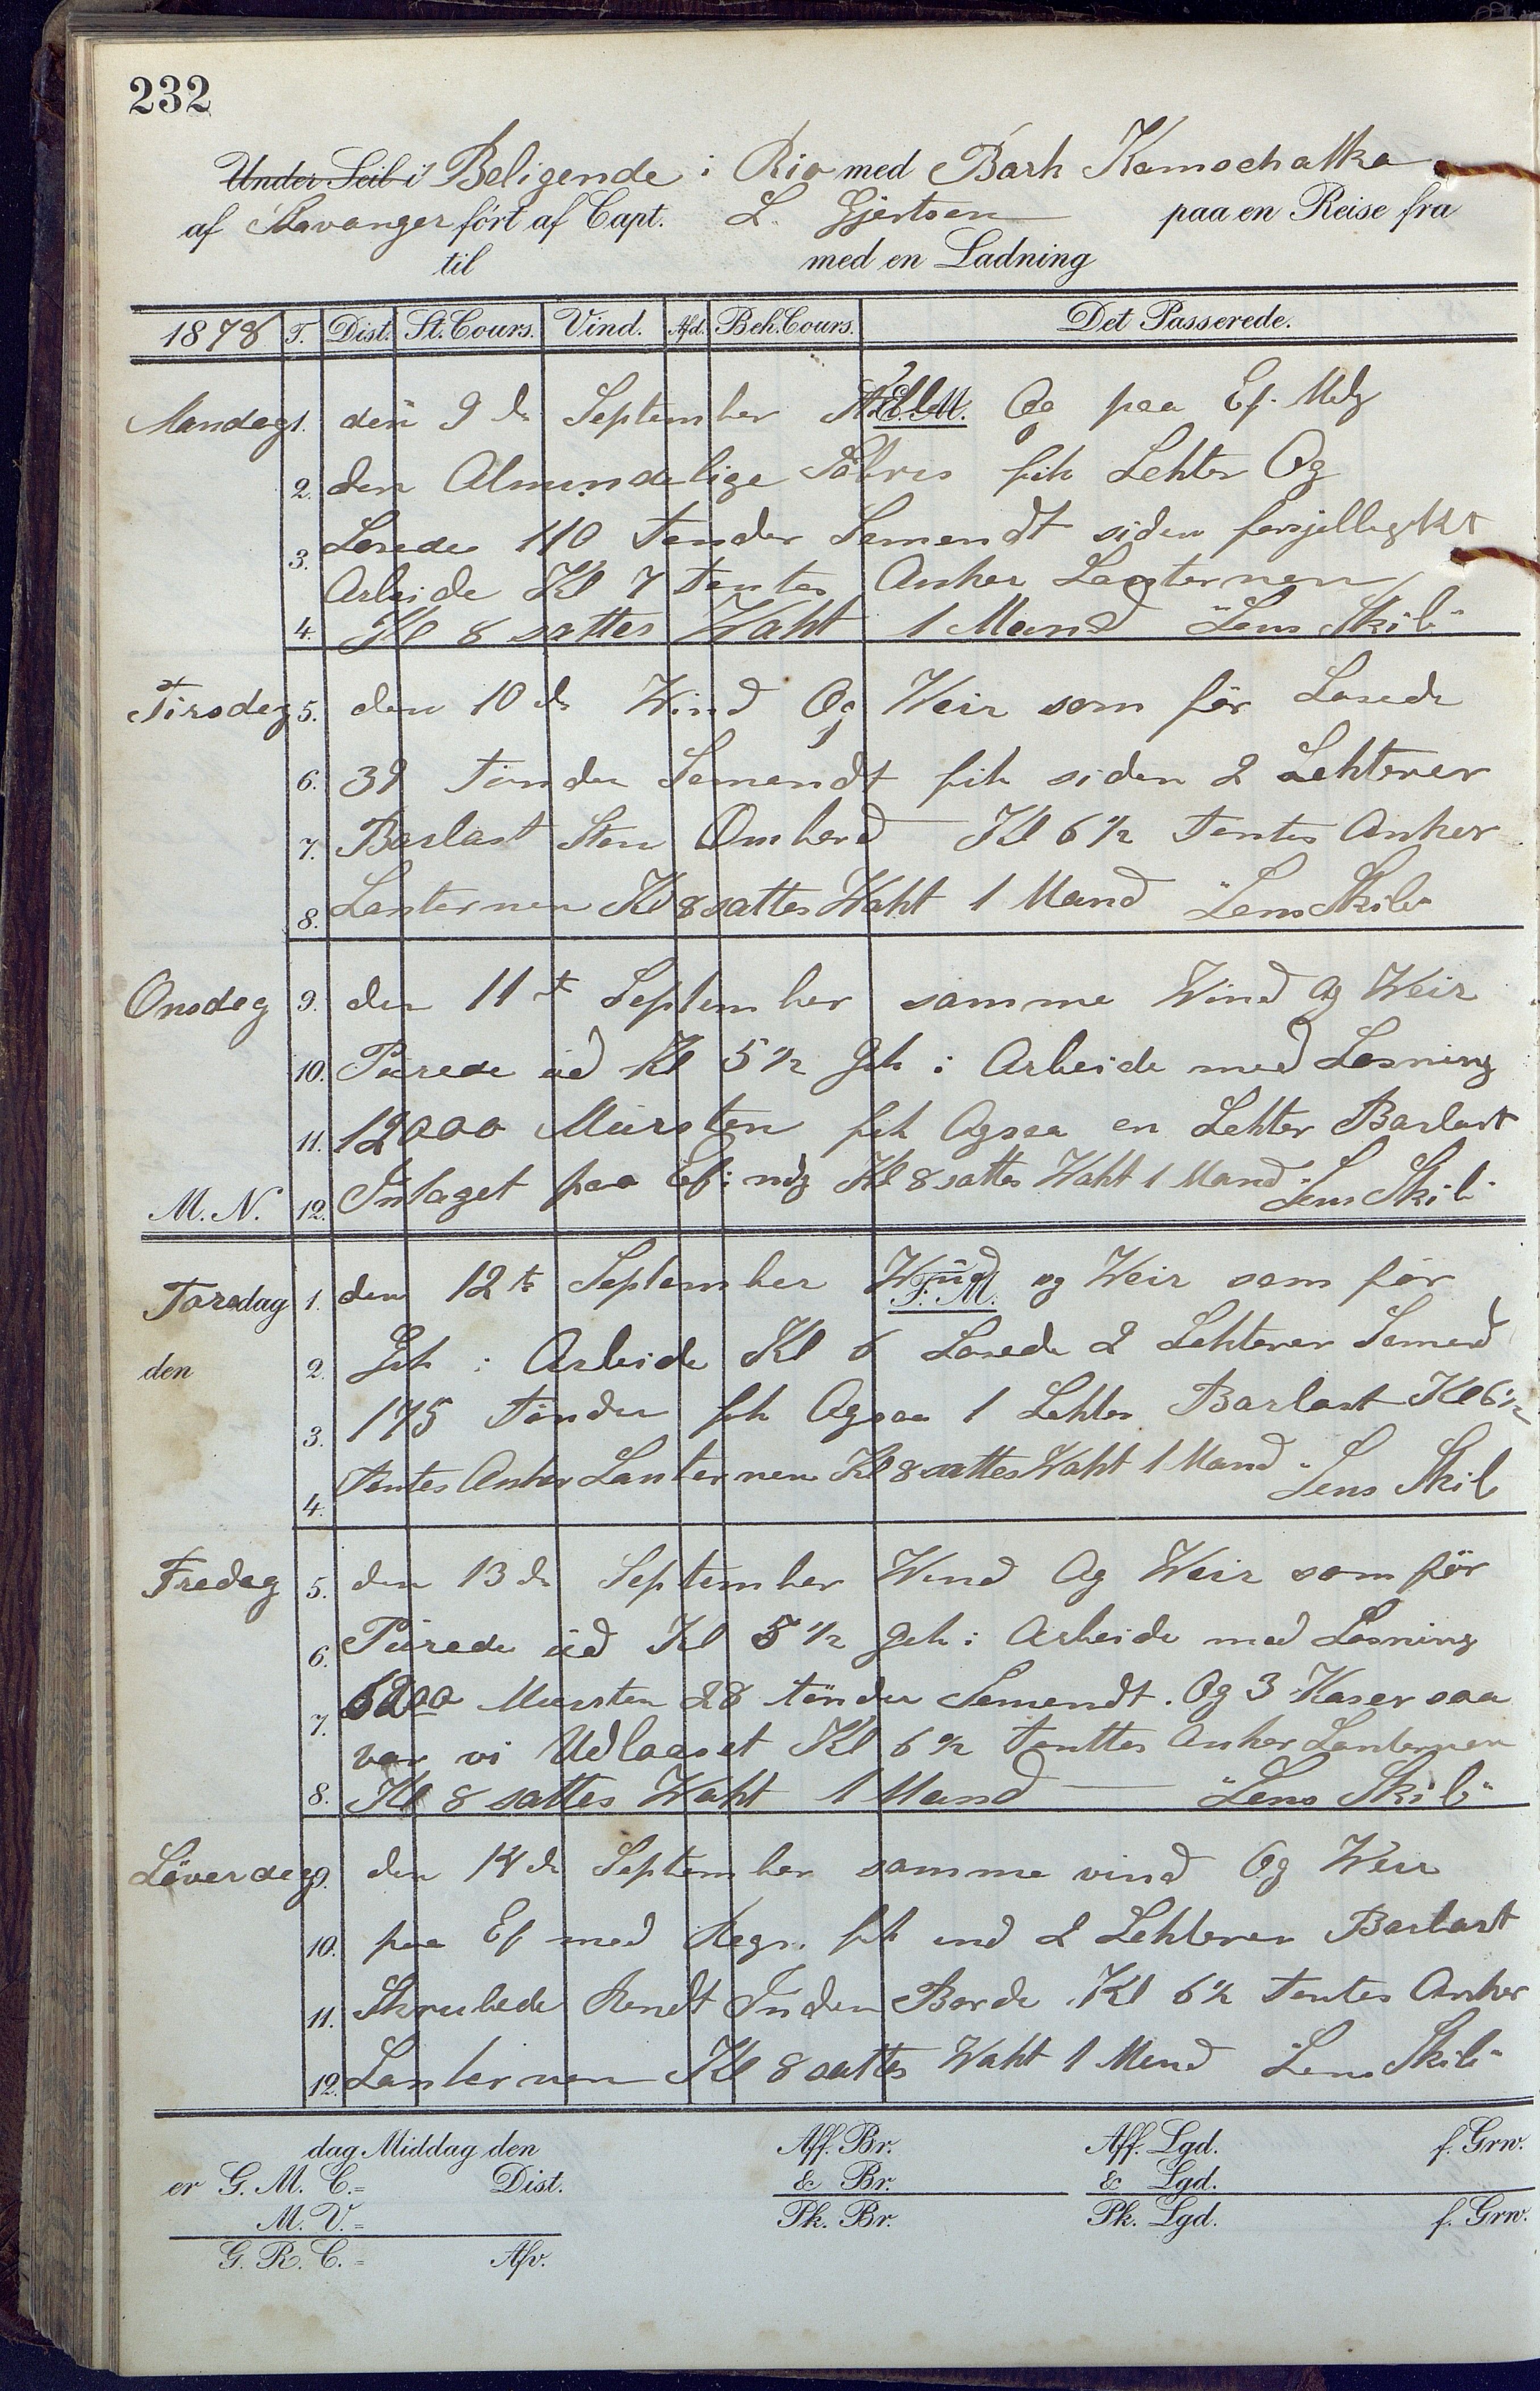 232
Under Seil i Beligende i Rio med Bark Kamschatka
af Stavanger fört af Capt. L. Gjertsen paa en Reise fra
til med en Ladning
1878 T. Dist. St. Cours. Vind. Afd. Beh. Cours. Det Passerede.
Mandag 1. den 9 de September E.M. Og paa Ef. Mdg
2. den Almindelige Söbris fik Lekter Og
3. Losede 110 Tønder Semendt siden
Arbeide Kl 7 tentes Anker Lanternen
4. Kl 8 sattes Waht 1 Mand "Lens Skib"
Tirsdag 5. den 10 de Wind Og Weir som för Losede
6. 39 Tönder Semendt fik siden 2 Lehterer
7. Barlast Sten Ombord Kl 6 1/2 tentes Anker
8. Lanternen Kl 8 sattes Waht 1 Mand "Lens Skib"
Onsdag 9. den 11 te September samme Wind Og Weir
10. Purede ud Kl 5 1/2 Gik i Arbeide med Losning
11. 12000 Mursten fik Ogsaa en Lehter Barlast
M. N. 12. Intaget paa Ef: mdg Kl 8 sattes Waht 1 Mand "Lens Skib"
Torsdag 1. den 12 te September Wind F. M. og Weir som för
den 2. Gik i Arbeide Kl 6 Losede 2 Lehterer Semend
3. 175 Tönder fik Ogsaa 1 Lehter Barlast Kl 6 1/2
4. tentes Anker Lanternen Kl 8 sattes Waht 1 Mand "Lens Skib
Fredag 5. den 13 de September Wind Og Weir som för
6. Purede ud Kl 5 1/2 Gik i Arbeide med Losning
7. 6200 Mursten 28 tönder Semendt. Og 3 Kaser saa
var vi Udlosset Kl 6 1/2 tenttes Anker Lanternen
8. Kl 8 sattes Waht 1 Mand "Lens Skib"
Löverdag 9. den 14 de September samme vind Og Weir
10. paa Ef med Regn. fik ind 2 Lehterer Barlast
11. Skrubede Rendt Inden Borde Kl 6 1/2 tentes Anker
12. Lanternen Kl 8 sattes Waht 1 Mand "Lens Skib"
dag Middag den Aff. Br. Aff. Lgd. f. Grw.
er G. M. C.= Dist. & Br. & Lgd.
M. V.= Pk. Br. Pk. Lgd. f. Grw.
G. R. C. = Afv.